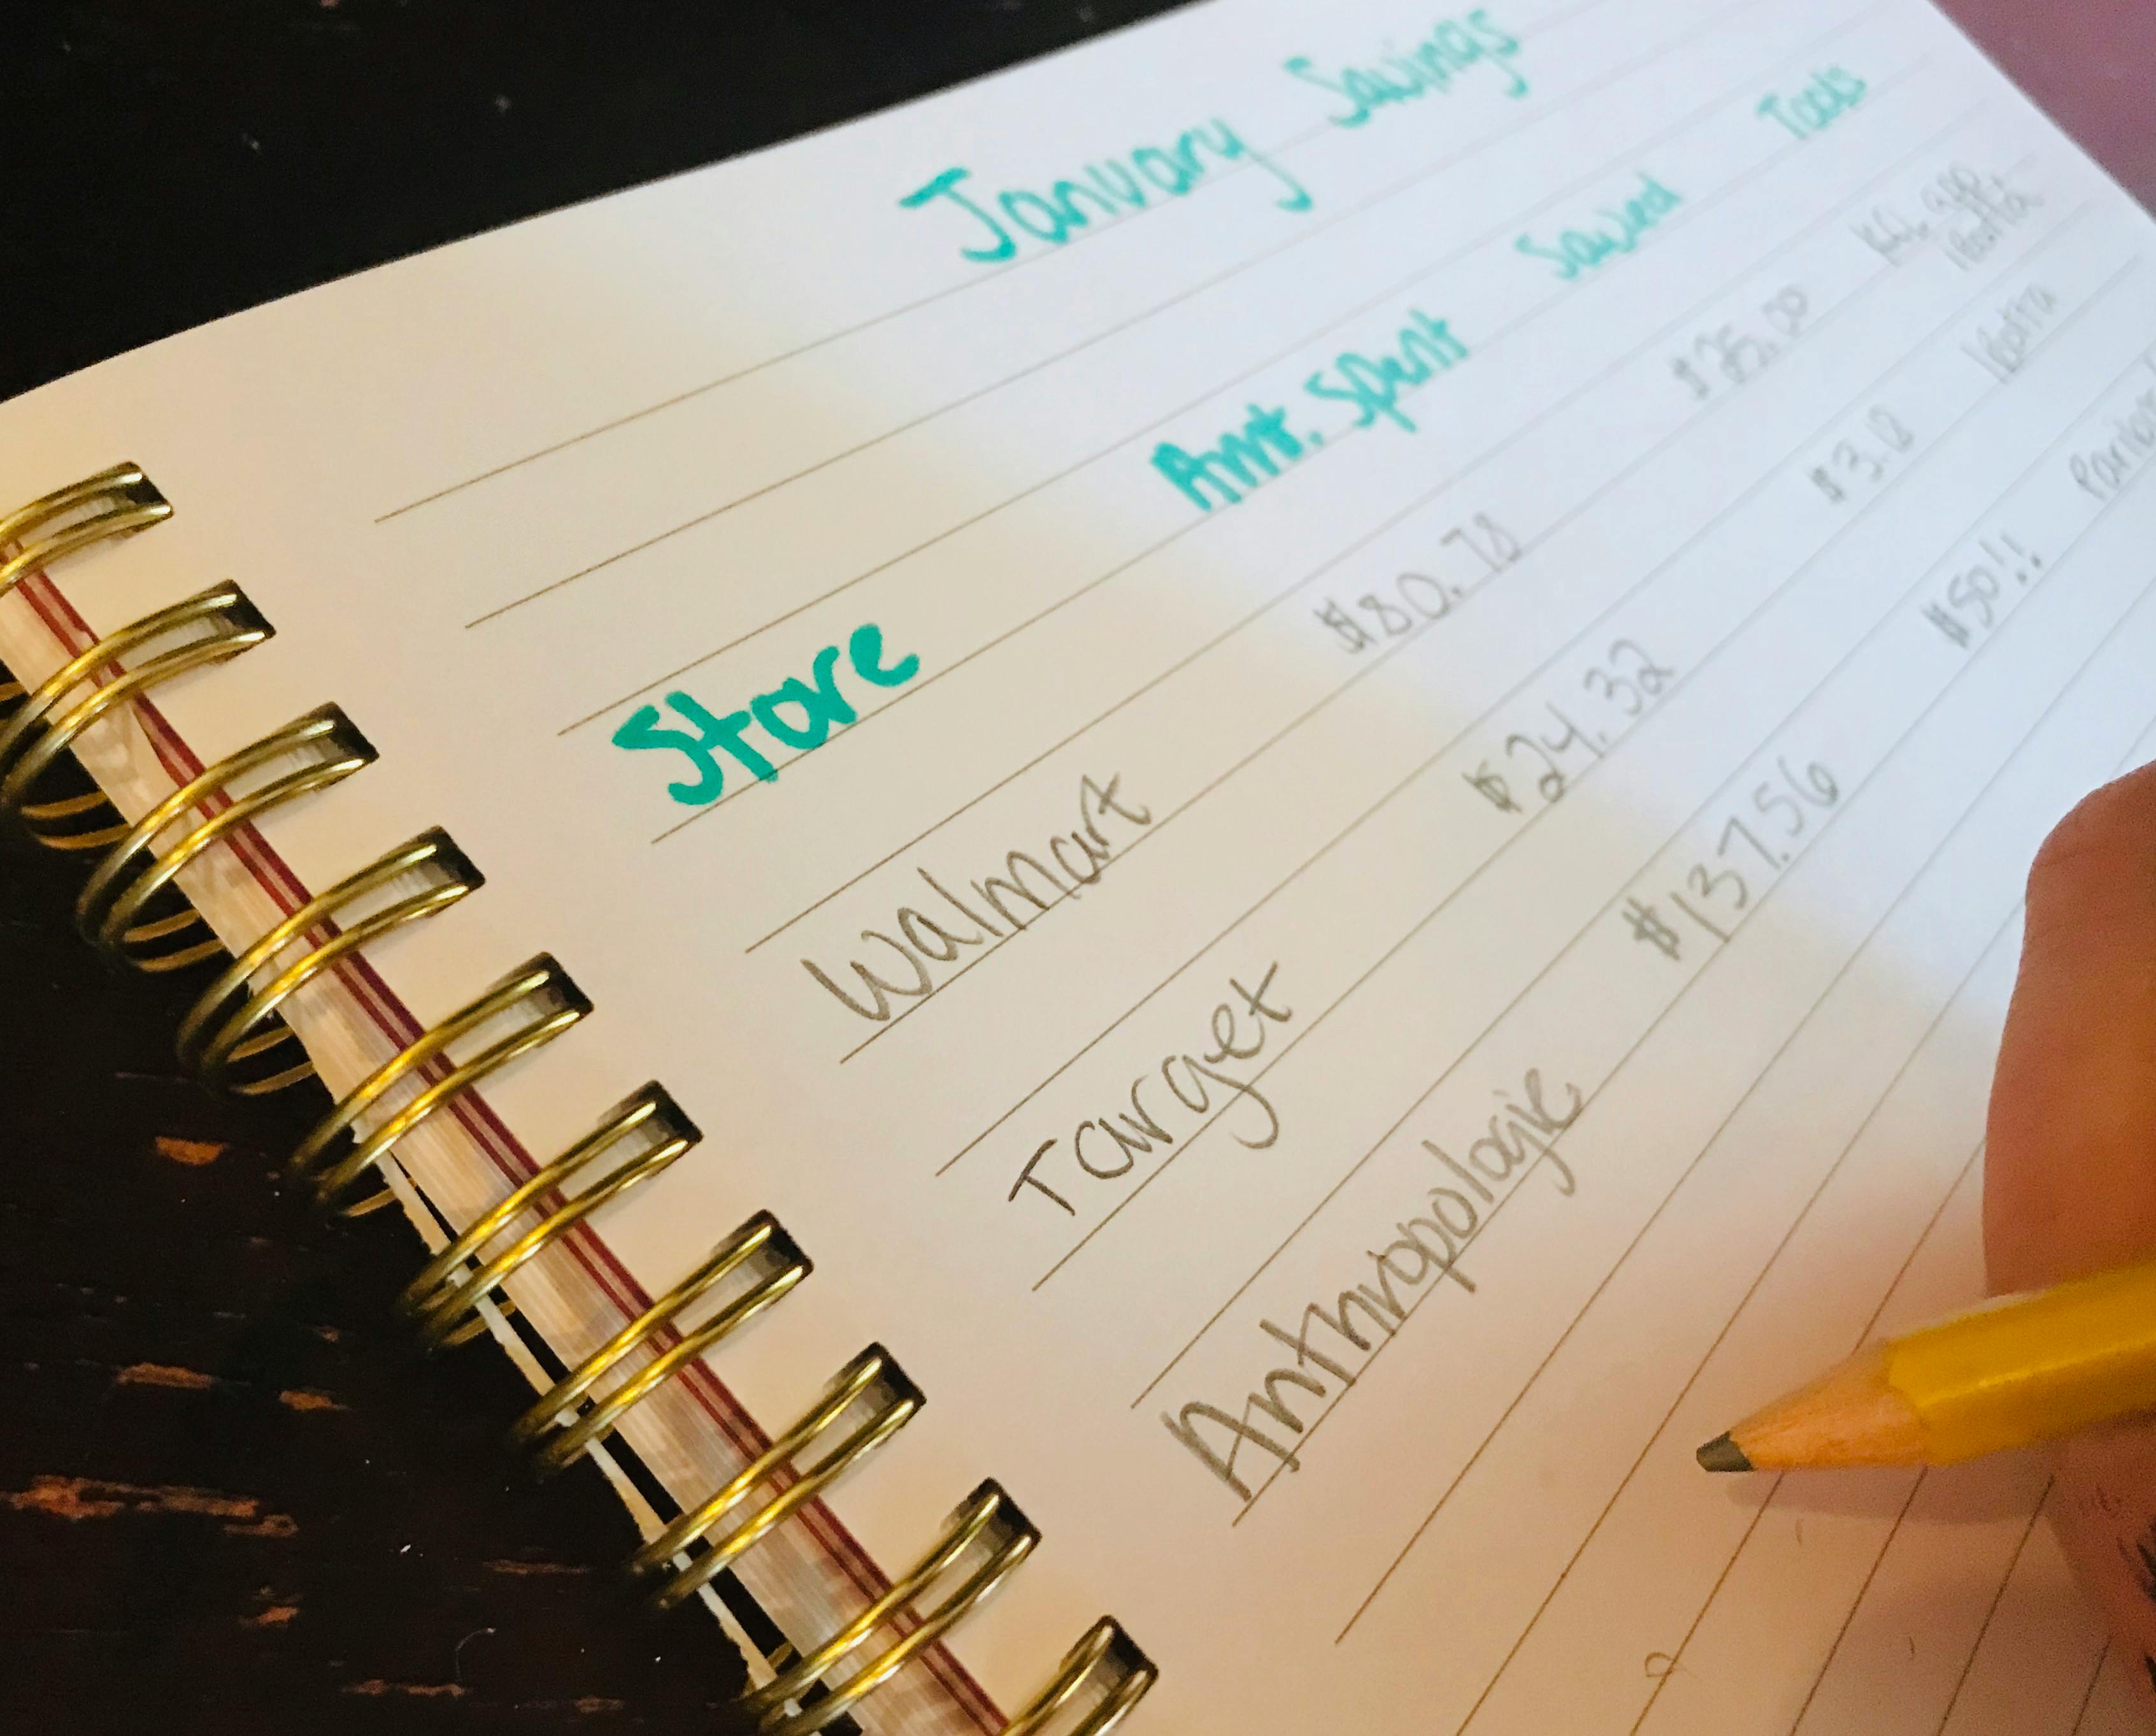 January Savings
Store Amt. Spent Saved Tools
Walmart $80.78 $25.00 app Ibotta
Target $24.32 $3.12 Ibotta
Anthropologie $137.56 $50!!